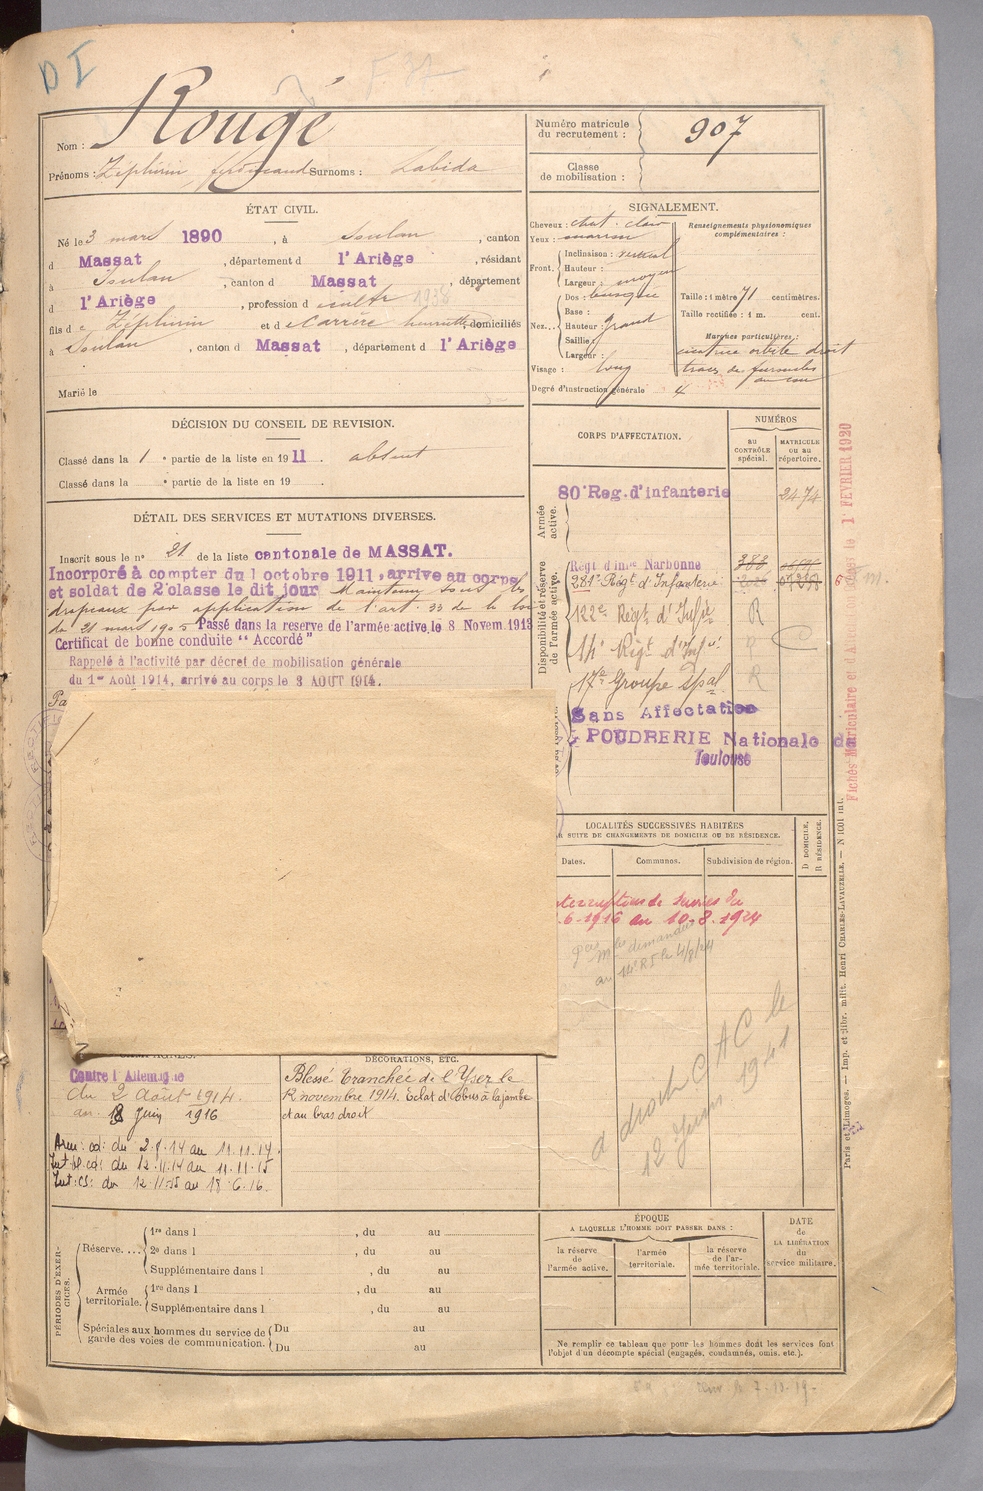 D I
F 32
Nom : Rougé
Prénoms : Zéphirin ferdinand Surnoms : Labida
Numéro matricule du recrutement : 907
Classe de mobilisation :
ÉTAT CIVIL.
Né le 3 mars 1890, à Soulan, canton
d Massat, département d l'Ariège, résidant
à Soulan, canton d Massat, département
d l'Ariège, profession d cultr 1938
fils d e Zéphirin et d e Carrère henriette, domiciliés
à Soulan, canton d Massat, département d l'Ariège
Marié le
SIGNALEMENT.
Cheveux : chat. clair
Yeux : marron
Front. Inclinaison : vertical
Hauteur :
Largeur : moyen
Nez. Dos : busqué
Base :
Hauteur : grand
Saillie :
Largeur :
Visage : long
Degré d'instruction générale 4
Renseignements physionomiques complémentaires :
Taille : 1 mètre 71 centimètres.
Taille rectifiée : 1 m. cent.
Marques particulières :
cicatrice orbite droit
traces de furoncles
au cou
DÉCISION DU CONSEIL DE REVISION.
Classé dans la 1 e partie de la liste en 1911. absent
Classé dans la e partie de la liste en 19 .
DÉTAIL DES SERVICES ET MUTATIONS DIVERSES.
Inscrit sous le no 21 de la liste cantonale de MASSAT.
Incorporé à compter du 1 octobre 1911, arrive au corps
et soldat de 2e classe le dit jour Maintenu sous les
drapeaux par application de l'art. 33 de la loi
du 21 mars 1905 Passé dans la reserve de l'armée active, le 8 Novem 1913
Certificat de bonne conduite " Accordé "
Rappelé à l'activité par décret de mobilisation générale
du 1er Août 1914, arrivé au corps le 3 AOUT 1914.
Pa
CORPS D'AFFECTATION.
NUMÉROS
AU CONTRÔLE spécial.
MATRICULE OU AU répertoire.
Armée active.
80e Reg. d'infanterie 2474
Disponibilité et réserve de l'armée active.
Régt d'Infie Narbonne 388
281e Régt d'Infanterie 07238
122e Régt d'Infie R
14e Régt d'Infie R
17e Groupe Spal R
Sans Affectation
POUDRERIE Nationale de
Toulouse
Fiches Matriculaire et d'A 1 FEVRIER 1920
LOCALITÉS SUCCESSIVES HABITÉES
PAR SUITE DE CHANGEMENTS DE DOMICILE OU DE RÉSIDENCE.
Dates.
Communes.
Subdivision de région.
D DOMICILE.
R RÉSIDENCE.
Interruptions de services du
.6-1916 au 10-8.1924
mles demandées
au 14e RI le 4/8/24
a droit C A C le
12 Juin 1941
CAMPAGNES.
Contre l'Allemagne
du 2 août 1914.
au 18 Juin 1916
Arm: cd: du 2.8.14 au 11.11.14.
Int: bl. cd: du 12.11.14 au 11.11.15
Int: cs: du 12.11.15 au 18.6.16.
DÉCORATIONS, ETC.
Blessé Tranchée de l'Yser le
12 novembre 1914. Eclat d'Obus à la jambe
et au bras droit
PÉRIODES D'EXERCICES.
Réserve.... 1re dans l , du au
2e dans l , du au
Supplémentaire dans l , du au
Armée territoriale. 1re dans l , du au
Supplémentaire dans l , du au
Spéciales aux hommes du service de garde des voies de communication. Du au
Du au
ÉPOQUE
A LAQUELLE L'HOMME DOIT PASSER DANS :
la réserve de l'armée active.
l'armée territoriale.
la réserve de l'armée territoriale.
DATE de LA LIBÉRATION du service militaire.
Ne remplir ce tableau que pour les hommes dont les services font
l'objet d'un décompte spécial (engagés, condamnés, omis, etc.).
Paris et Limoges. — Imp. et libr. milit. Henri CHARLES-LAVAUZELLE. — N 1001 int.